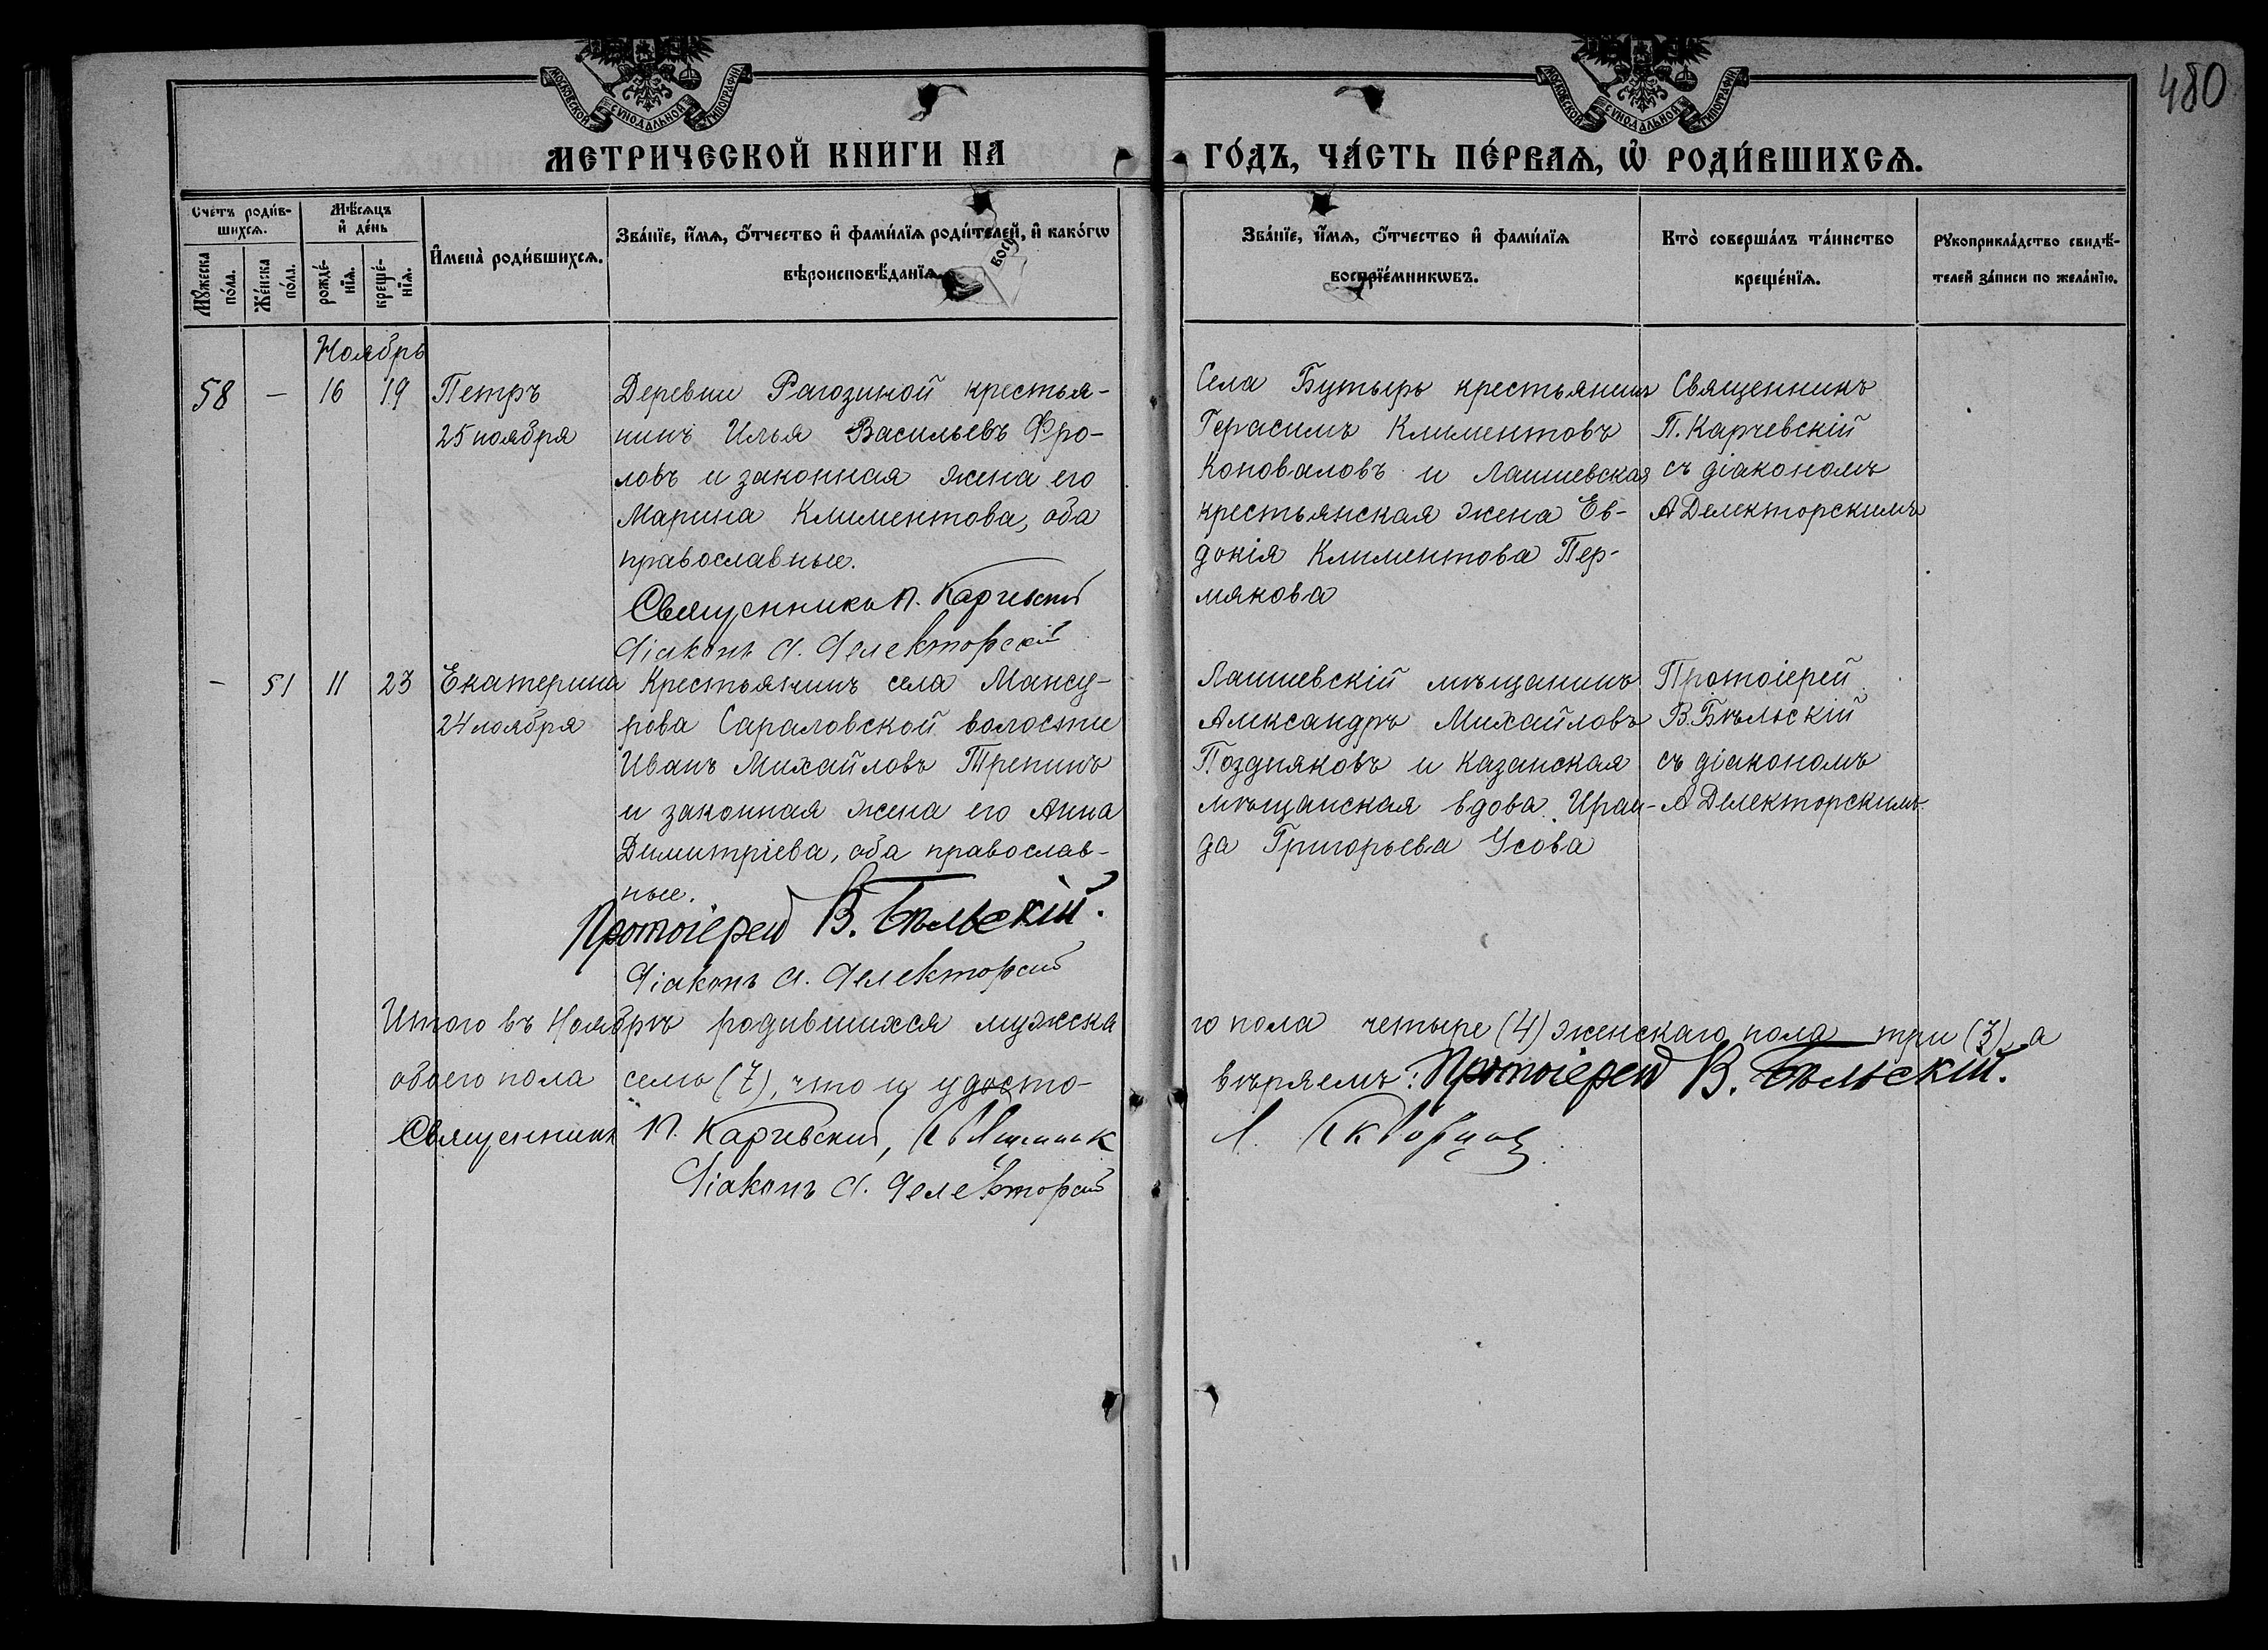 480
МОСКОВСКОЙ СѴНОДАЛЬНОЙ ТИПОГРАФІИ
МОСКОВСКОЙ СѴНОДАЛЬНОЙ ТИПОГРАФІИ
МЕТРИЧЕСКОЙ КНИГИ НА
ГО́ДЪ, ЧА́СТЬ ПЕ́РВАѦ, Ѽ РОДИ́ВШИХСѦ.
Сче́тъ роди́в-
шихсѧ.
Мꙋ́жеска по́ла.
Же́нска по́ла.
Мѣ́сѧцъ
и҆ де́нь
рожде́-
нїѧ.
креще́-
нїѧ.
И҆мена̀ роди́вшихсѧ.
Зва́нїе, и҆́мѧ, ѻ҆́тчество и҆ фами́лїѧ роди́телей, и҆ како́гѡ
вѣроисповѣ́данїѧ.
вос
Зва́нїе, и҆́мѧ, ѻ҆́тчество и҆ фами́лїѧ
воспрїе́мникѡвъ.
Кто̀ соверша́лъ та́инство
креще́нїѧ.
Рꙋкоприкла́дство свидѣ́-
телей за́писи по жела́нїю.
Ноябрь
58 — 16 19
Петръ
25 ноября
Деревни Рагозиной крестья-
нинъ Илья Васильевъ Фро-
ловъ и законная жена его
Марина Климентова, оба
православные.
Священникъ П. Карчевскій
Діаконъ А. Делекторскій
Села Бутырь крестьянинъ
Герасимъ Климентовъ
Коноваловъ и Лаишевская
крестьянская жена Ев-
докія Климентова Пер-
мякова
Священникъ
П. Карчевскій
съ діакономъ
А Делекторскимъ
- 51 11 23
Екатерина
24 ноября
Крестьянинъ села Мансу-
рова Сараловской волости
Иванъ Михайловъ Тренинъ
и законная жена его Анна
Димитріева, оба православ-
ные.
Протоіерей В. Бѣльскій.
Діаконъ А. Делекторскій
Лаишевскій мѣщанинъ
Александръ Михайловъ
Поздняковъ и Казанская
мѣщанская вдова Ираи-
да Григорьева Усова
Протоіерей
В. Бѣльскій
съ діакономъ
А Делекторскимъ
Итого въ Ноябрѣ родившихся мужска
го пола четыре (4) женскаго пола три (3), а
обоего пола семь (7), что и удосто-
вѣряемъ: Протоіерей В. Бѣльскій.
Священникъ П. Карчевскій, Священник
Л. Скворцов
Діаконъ А. Делекторскій